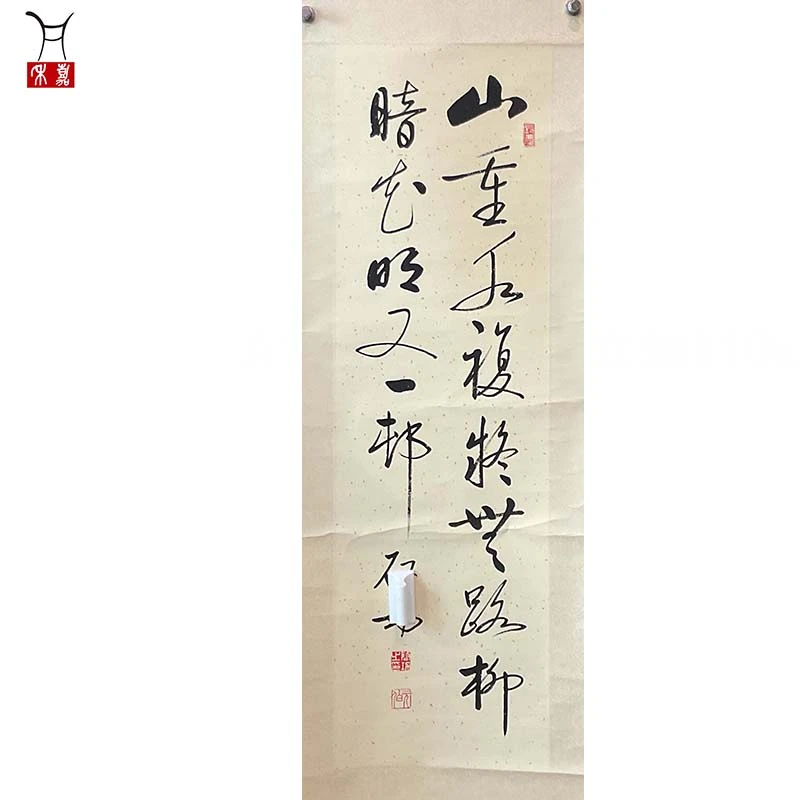 嘉禾
山重水複疑無路柳
暗花明又一邨